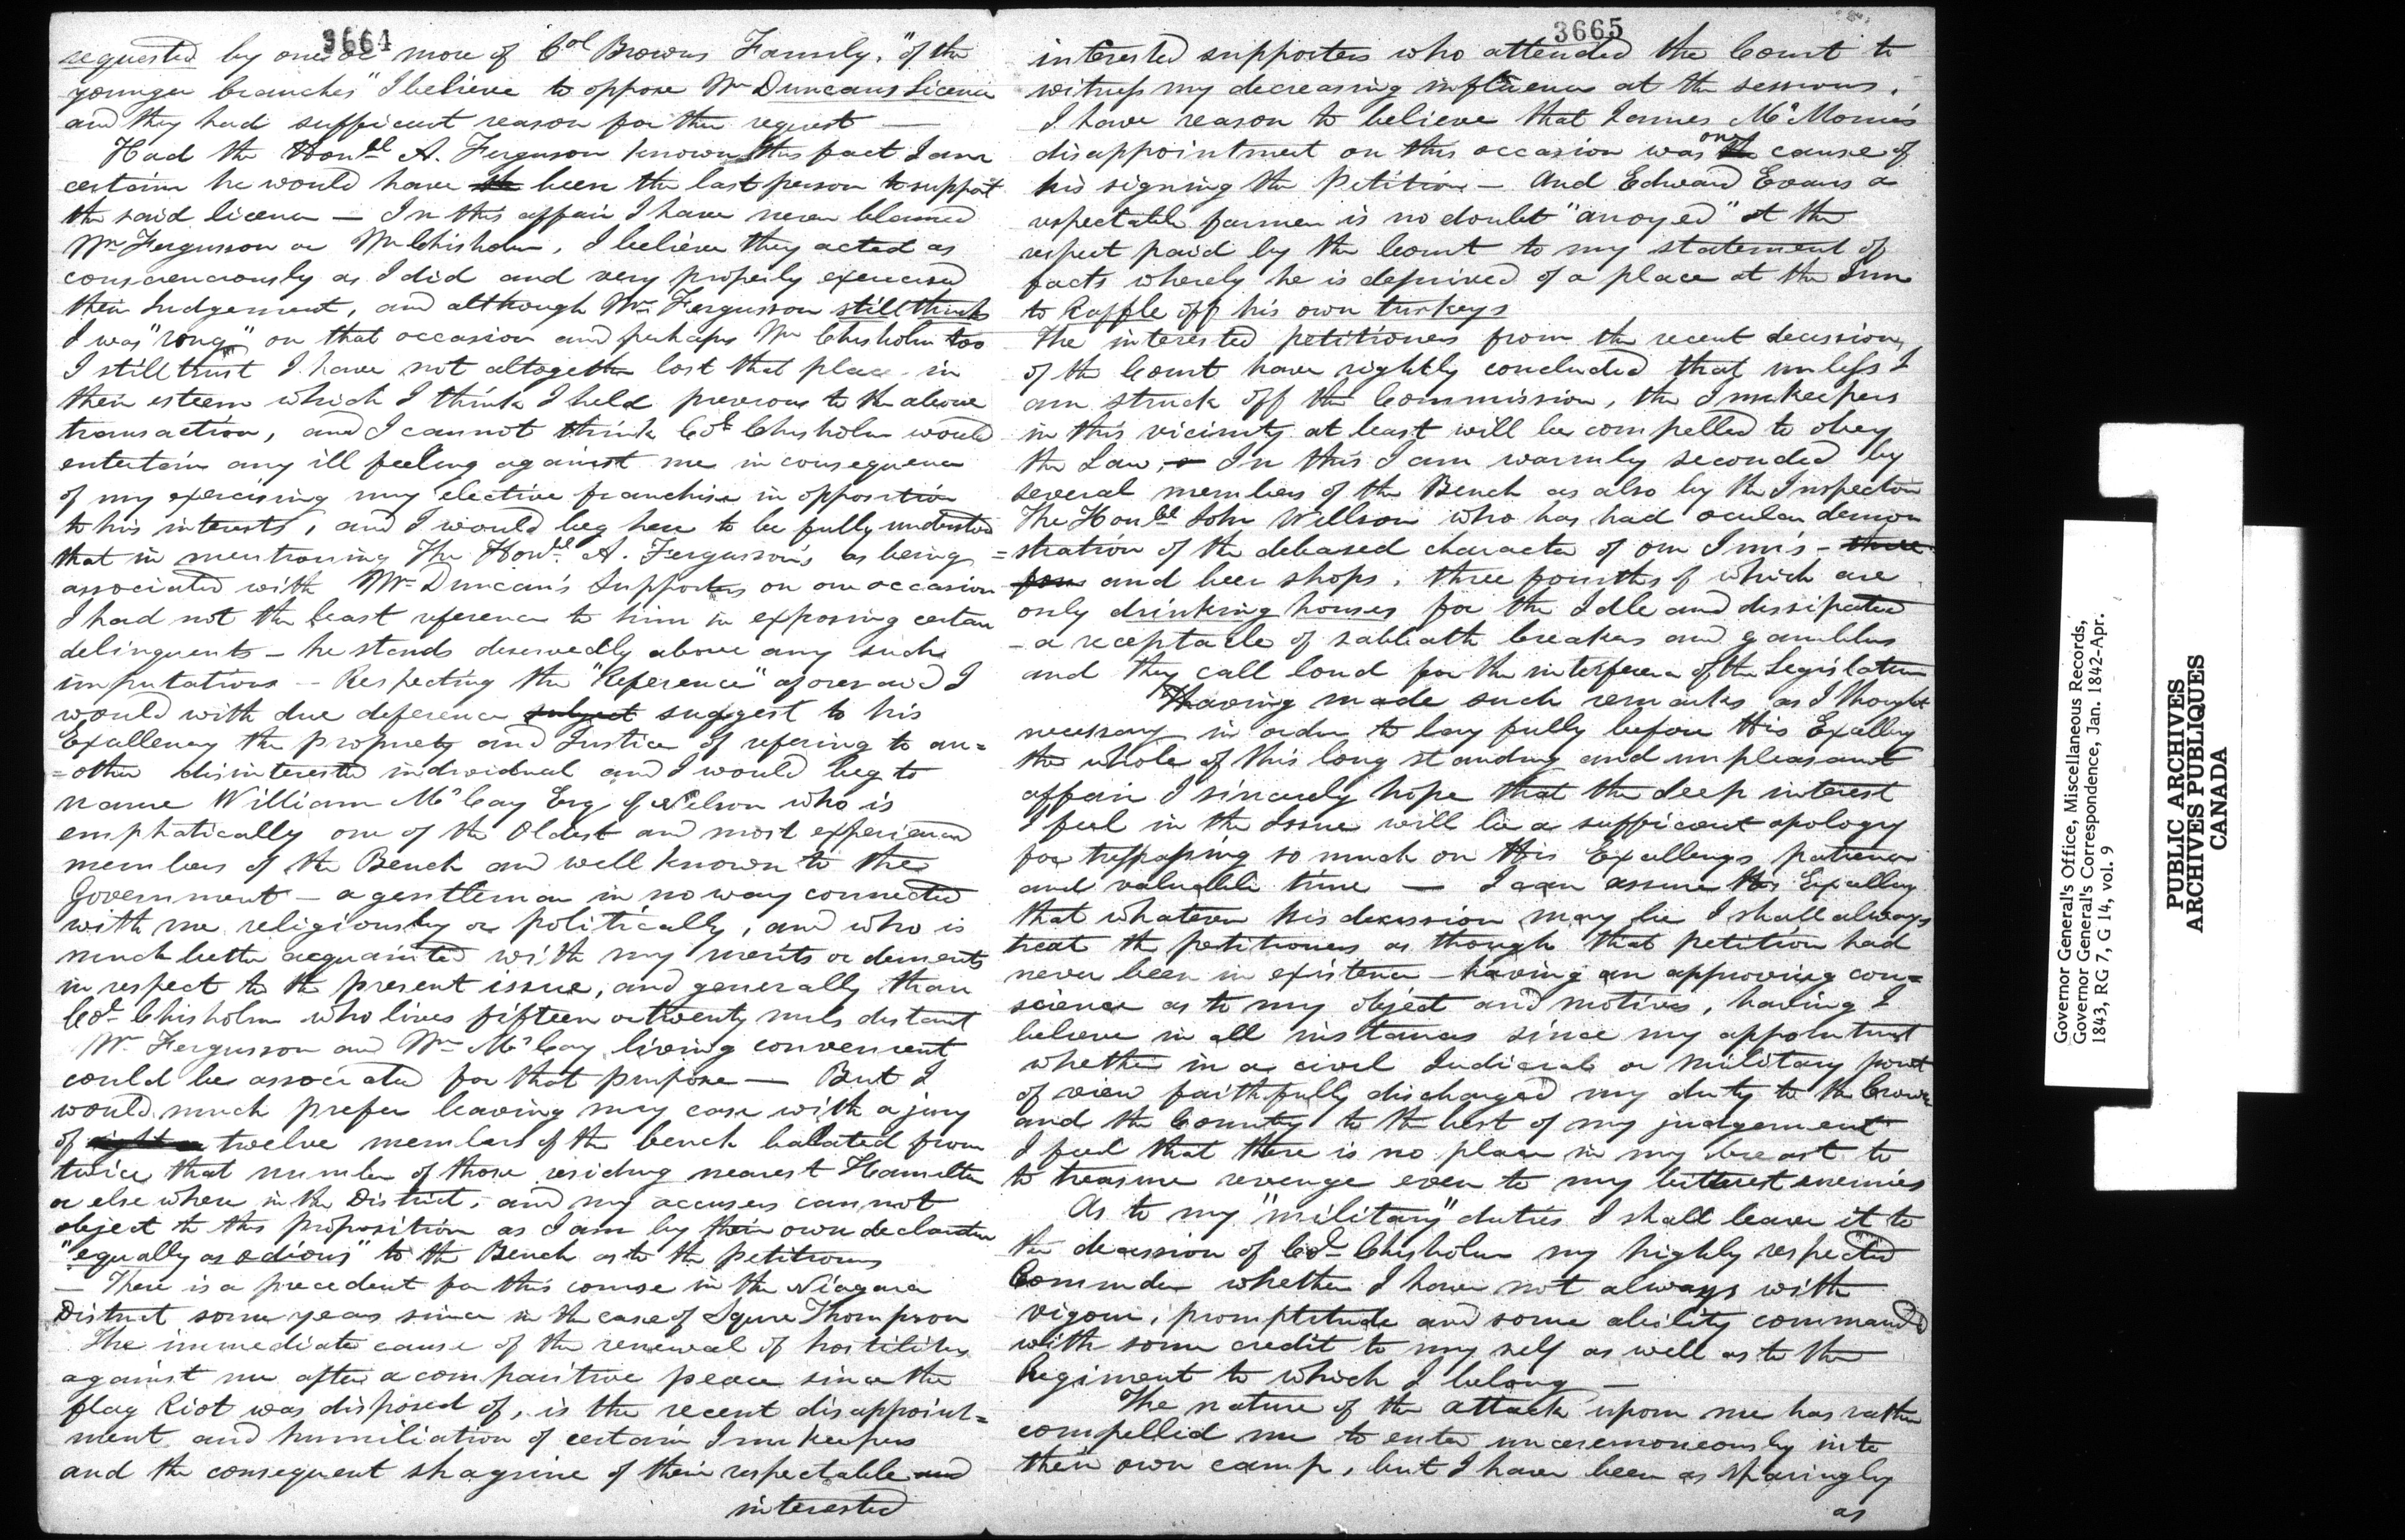 3664
requested by one or more of Col Browns Family, "of the
younger branches" I believe to oppose Mr Duncans Licence
and they had sufficient reason for their request —
Had the Honble A. Ferguson known this fact I am
certain he would have been the last person to support
the said licence — In this affair I have never blamed
Mr Fergusson or Mr Chisholm, I believe they acted as
conscienciously as I did and very properly exercised
their Judgement, and although Mr Fergusson still thinks
I was "rong" on that occasion and perhaps Mr Chisholm too
I still trust I have not altogether lost that place in
their esteem which I think I held previous to the above
transaction, and I cannot think Col Chisholm would
entertain any ill feeling against me in consequence
of my exercising my elective franchise in opposition
to his interests, and I would beg here to be fully understood
that in mentioning The Honbl A. Fergusson's as being
associated with Mr Duncan's Supporters on one occasion
I had not the least reference to him in exposing certain
delinquents — he stands deservedly above any such
imputations — Respecting the "Reference" aforesaid I
would with due deference subject suggest to his
Excellency the propriety and Justice of refering to an=
=other disinterested individual and I would beg to
name William McCay Esq of Nelson who is
emphatically one of the Oldest and most experienced
members of the Bench and well known to the
Government — a gentleman in no way connected
with me religiously or politically, and who is
much better acquainted with my merits or demerits
in respect to the present issue, and generally than
Col Chisholm who lives fifteen or twenty mils distant
Mr Fergusson and Wm McCay living convenient
could be associated for that purpose — But I
would much prefer leaving my case with a jury
of twelve members of the bench ballated from
twice that number of those residing nearest Hamilton
or else where in the District, and my accusers cannot
object to this proposition as I am by their own declaration
"equally as odious" to the Bench as to the petitions
— There is a precedent for this course in the Niagara
District some years since in the case of Squre Thompson
The immediate cause of the renewal of hostilities
against me after a comparitive peace since the
flag Riot was disposed of, is the recent disappoint=
ment and humiliation of certain Innkeepers
and the consequent shagrine of their respectable and
interested
3665
interested supporters who attended the Court to
witness my decreasing influence at the sessions.
I have reason to believe that James McMonies
disappointment on this occasion was one cause of
his signing the Petition — And Edward Evans a
respectable farmer is no doubt "anoyed" at the
respect paid by the Court to my statement of
facts whereby he is deprived of a place at the Inn
to Raffle off his own turkeys
The interested petitioners from the recent decissions
of the Court have rightly concluded that unless I
am struck off the Commission, the Innkeepers
in this vicinity at least will be compelled to obey
the Law, — In this I am warmly seconded by
several members of the Bench as also by the Inspector
The Honble John Willson who has had ocular demon
=stration of the debased character of our Inn's — three
four and beer shops, three fourths of which are
only drinking houses for the Idle and dissipated
— a receptacle of sabbath breakers and gamblers
and they call loud for the interference of the Legislature
Having made such remarks as I thought
necessary in order to lay fully before His Excellency
the whole of this long standing and unpleasant
affair I sincerely hope that the deep interest
I feel in the Issue will be a sufficient apology
for trespassing so much on His Excellencys patience
and valuable time — I can assure His Excellency
that whatever his decission may be I shall always
treat the petitioners as though that petition had
never been in existence — having an approving con=
science as to my object and motives, having I
believe in all instances since my appointment
whether in a civil Judicial or military point
of view faithfully discharged my duty to the Crown
and the County to the best of my judgement
I feel that there is no place in my breast to
to treasure revenge even to my bitterest enemies
As to my "military" duties I shall leave it to
the decission of Col Chisholm my highly respected
Commder whether I have not always with
vigour, promptitude and some ability commanded
with some credit to my self as well as to the
Regiment to which I belong —
The nature of the attack upon me has rather
compelled me to enter unceremoneously into
their own camp, but I have been as sparingly
as
Governor General's Office, Miscellaneous Records,
Governor General's Correspondence, Jan. 1842-Apr.
1843, RG 7, G 14, vol. 9
PUBLIC ARCHIVES
ARCHIVES PUBLIQUES
CANADA